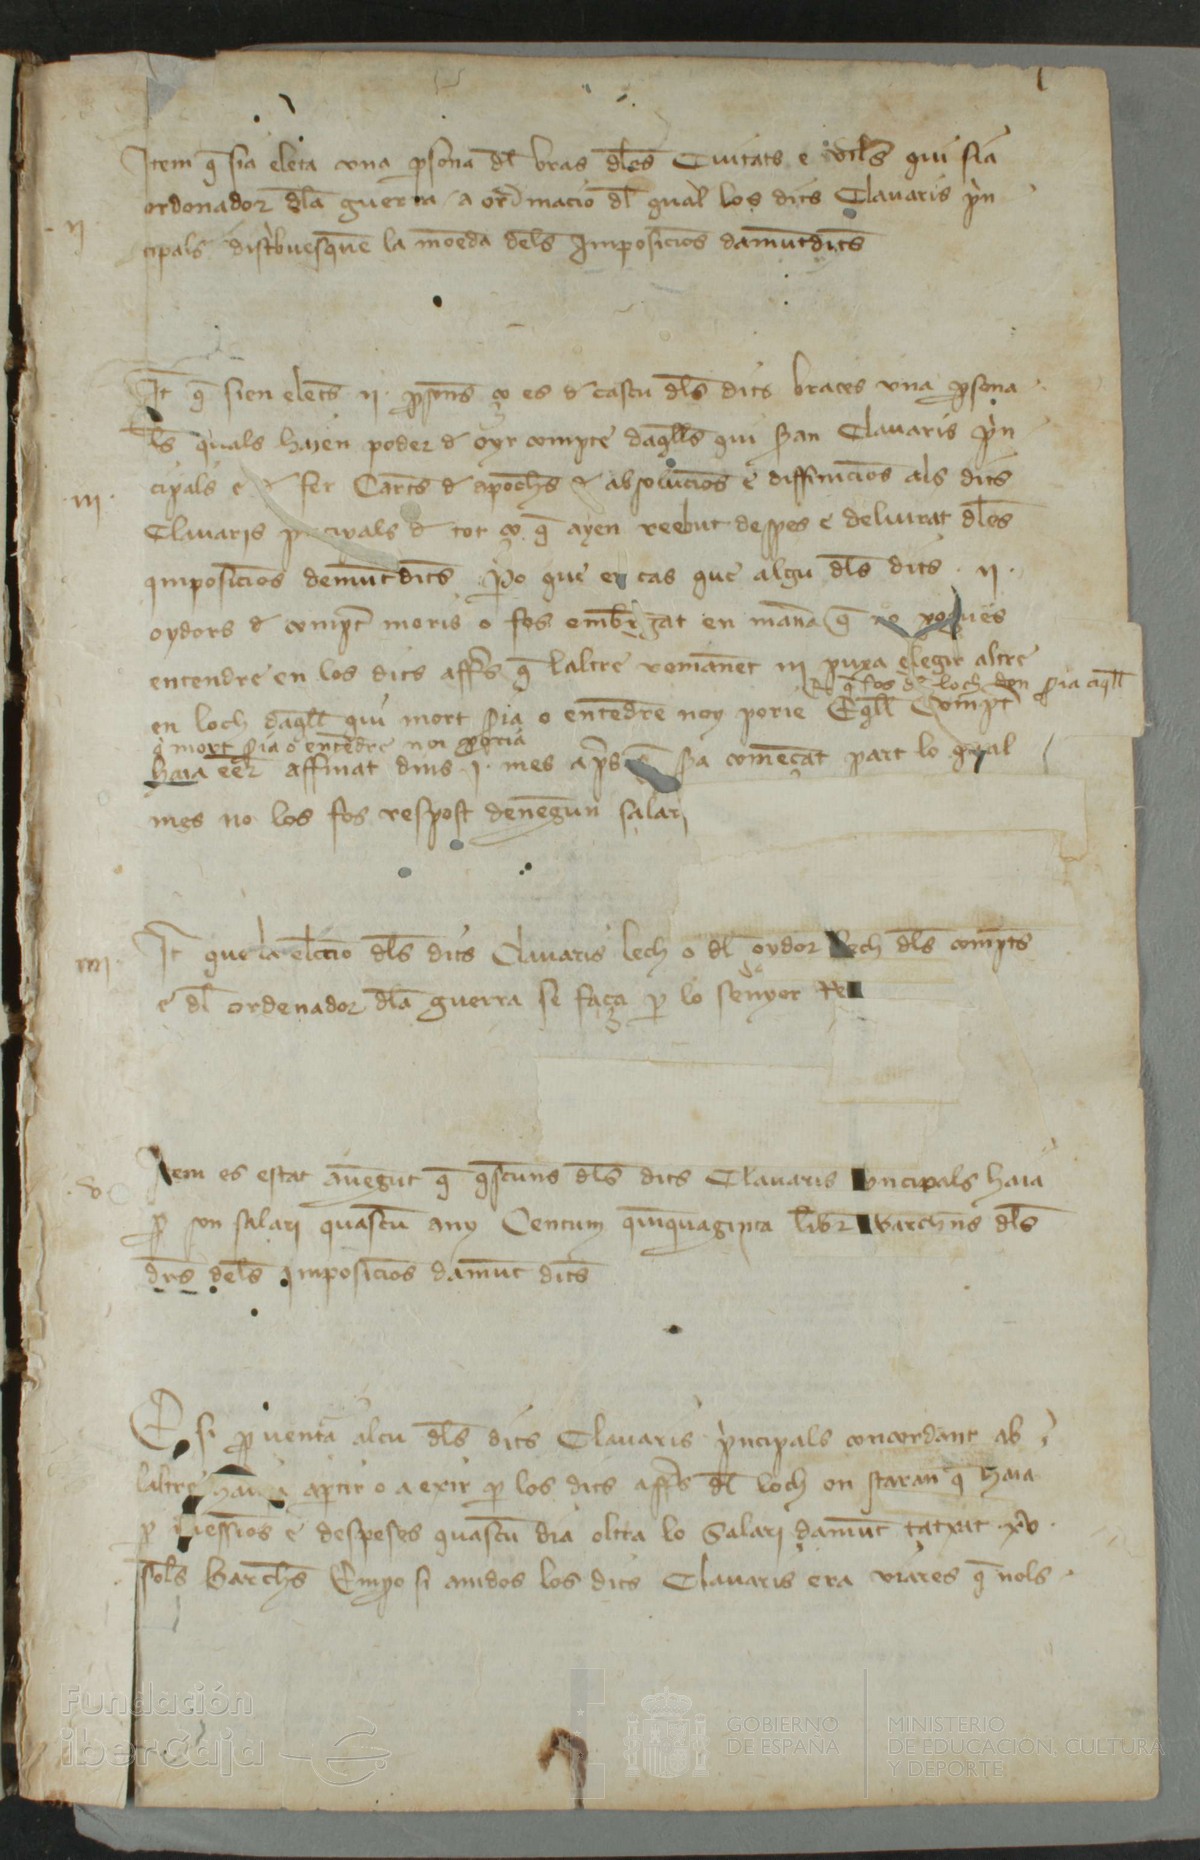 Item q̄ sia eleta vna ꝑsona dl̄ bras dl̄es Ciutats e viles qui sia
ordonador dl̄a guerra / a ordinacio dl̄ qual los dits Clauaris prin
·ii· cipals distribuesquē la moeda dels Imposicions damūtdits
It̄ q̄ sien elets ii· ꝑsons ço es d cascu dl̄s dits braces vna ꝑsona ·
ls quals hajen poder d oyr compte daq̄lls qui seran Clauaris prin
cipals e d fer Carts d apochs d absolucions e diffinicions als dits
·iii· Clauaris principals d tot ço q̄ ayen reebut despes e deliurat dl̄es
imposicions demūtdits ꝑo que en cas que algu dl̄s dits · ii ·
oydors d compt moris o fos embrigat en mana q̄ no pogues
entendre en los dits affrs q̄ laltre romanent iii puxa elegir altre
en loch daq̄ll qui mort sia o entēdre noy porie Eq̄ll Compt
q̄ fos d loch don sia aq̄ll
q̄ mort sia o entēdre noi poria
haia eer affinat dins ·i· mes aprs q̄ sa comēçat part lo qual
mes no los fos respost denegun salari
·iiii· It̄ que la eleccio dl̄s dits Clauaris lech o dl̄ oydor lech dl̄s compts
e dl̄ ordenador dl̄a guerra se faça ꝑ lo senyor Rey
·v· Item es estat auēgut q̄ q̄scuns dl̄s dits Clauaris principals haia
ꝑ son salari quascū any Centum quinquaginta libr Barchns dl̄s
drs dels Imposicions damūt dits
E si ꝑuentura alcu dl̄s dits Clauaris principals concordant ab
laltre hauia a ꝑtir o a exir ꝑ los dits affrs dl̄ loch on staran q̄ haia
ꝑ messions e despeses quascū dia oltra lo Salari damūt tatxat ·xv·
sols Barchs Emꝑo si amdos los dits Clauaris era viares q̄ nols ·
Fundación
iberCaja
GOBIERNO
DE ESPAÑA
MINISTERIO
DE EDUCACIÓN, CULTURA
Y DEPORTE